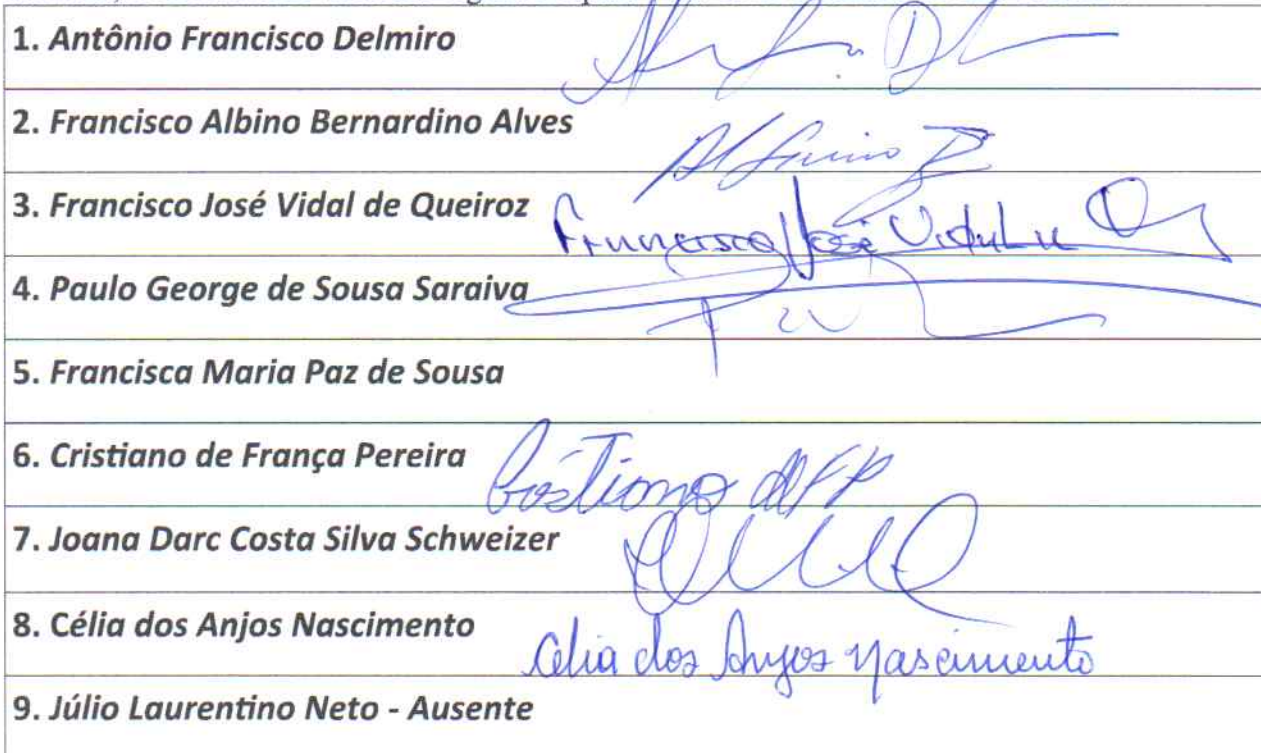 1. Antônio Francisco Delmiro
2. Francisco Albino Bernardino Alves
3. Francisco José Vidal de Queiroz
Francisco José Vidal
4. Paulo George de Sousa Saraiva
5. Francisca Maria Paz de Sousa
6. Cristiano de França Pereira
7. Joana Darc Costa Silva Schweizer
8. Célia dos Anjos Nascimento
Célia dos Anjos Nascimento
9. Júlio Laurentino Neto - Ausente